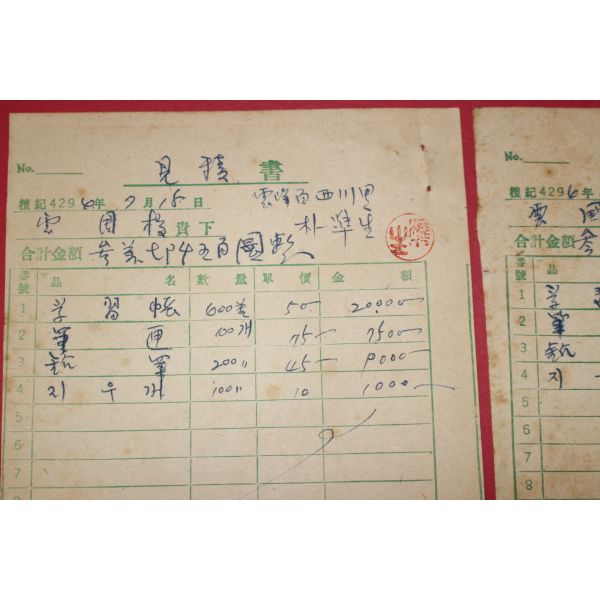 No.
見積書
檀紀4294年7月15日
雲峰面西川里
雲国校貴下
朴準生
合計金額 参萬七阡五百圜整
番號 品名 數量 單價 金額
1 学習帳 400 50 20000
2 筆匣 100개 75 7500
3 鉛筆 200〃 45 9000
4 지우개 100〃 10 1000
5
6
7
8
No.
檀紀4294
雲国
合計金額 参
番號 品
1 学
2 筆
3 鉛
4 지
5
6
7
8